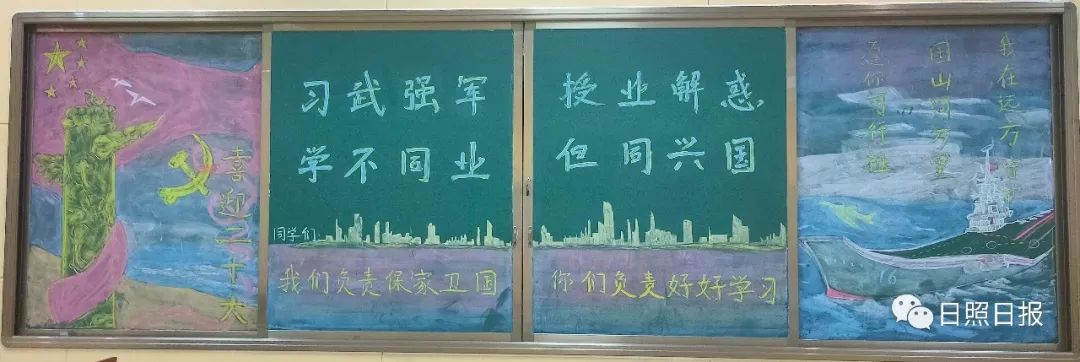 喜迎二十大
习武强军 授业解惑
学不同业 但同兴国
同学们
我们负责保家卫国 你们负责好好学习
我在远方
国山河万里
你
16
日照日报